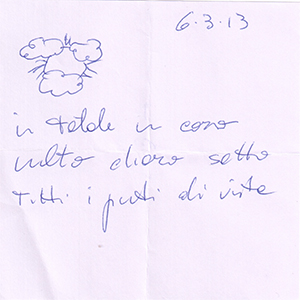 6.3.13
in totale un caso
molto chiaro sotto
tutti i punti di vista